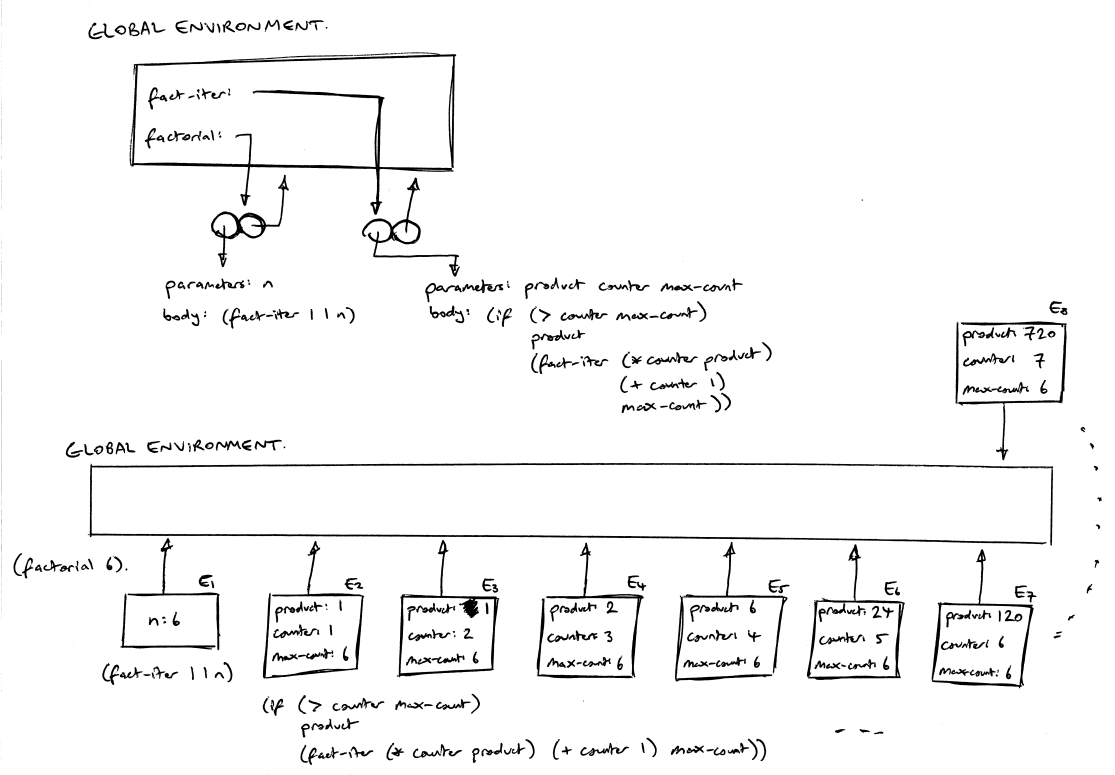 GLOBAL ENVIRONMENT.
fact-iter:
factorial:
parameters: n
body: (fact-iter 1 1 n)
parameters: product counter max-count
body: (if (> counter max-count)
product
(fact-iter (* counter product)
(+ counter 1)
max-count))
E8
product: 720
counter: 7
max-count: 6
GLOBAL ENVIRONMENT.
(factorial 6).
E1
n: 6
(fact-iter 1 1 n)
E2
product: 1
counter: 1
max-count: 6
(if (> counter max-count)
product
(fact-iter (* counter product) (+ counter 1) max-count))
E3
product: 1
counter: 2
max-count: 6
E4
product: 2
counter: 3
max-count: 6
E5
product: 6
counter: 4
max-count: 6
E6
product: 24
counter: 5
max-count: 6
E7
product: 120
counter: 6
max-count: 6